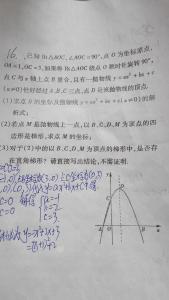 16. 已知 Rt△AOC中,∠AOC=90°,点 O 为坐标原点,
OA=1,OC=3,如果将 Rt△AOC 绕点 O 顺时针旋转 90°,
点 C 与 x 轴上点 B 重合,且有一抛物线 y=ax²+bx+c
(a≠0)恰好经过 A、B、C 三点,点 D 是该抛物线的顶点.
(1)求点 B 的坐标及抛物线 y=ax²+bx+c(a≠0)的解
析式;
(2)若点 M 是抛物线上一点,以 B、C、D、M 为顶点的四
边形是梯形,求点 M 的坐标;
(3)对于(2)中的以 B、C、D、M 为顶点的梯形中,是否存
在直角梯形?请直接写出结论,不需证明.
(3,0)
c=0 解得
c=0
a=-1
b=2
c=3
y=-x²+2x+3
y
D
C
A
O
B
x